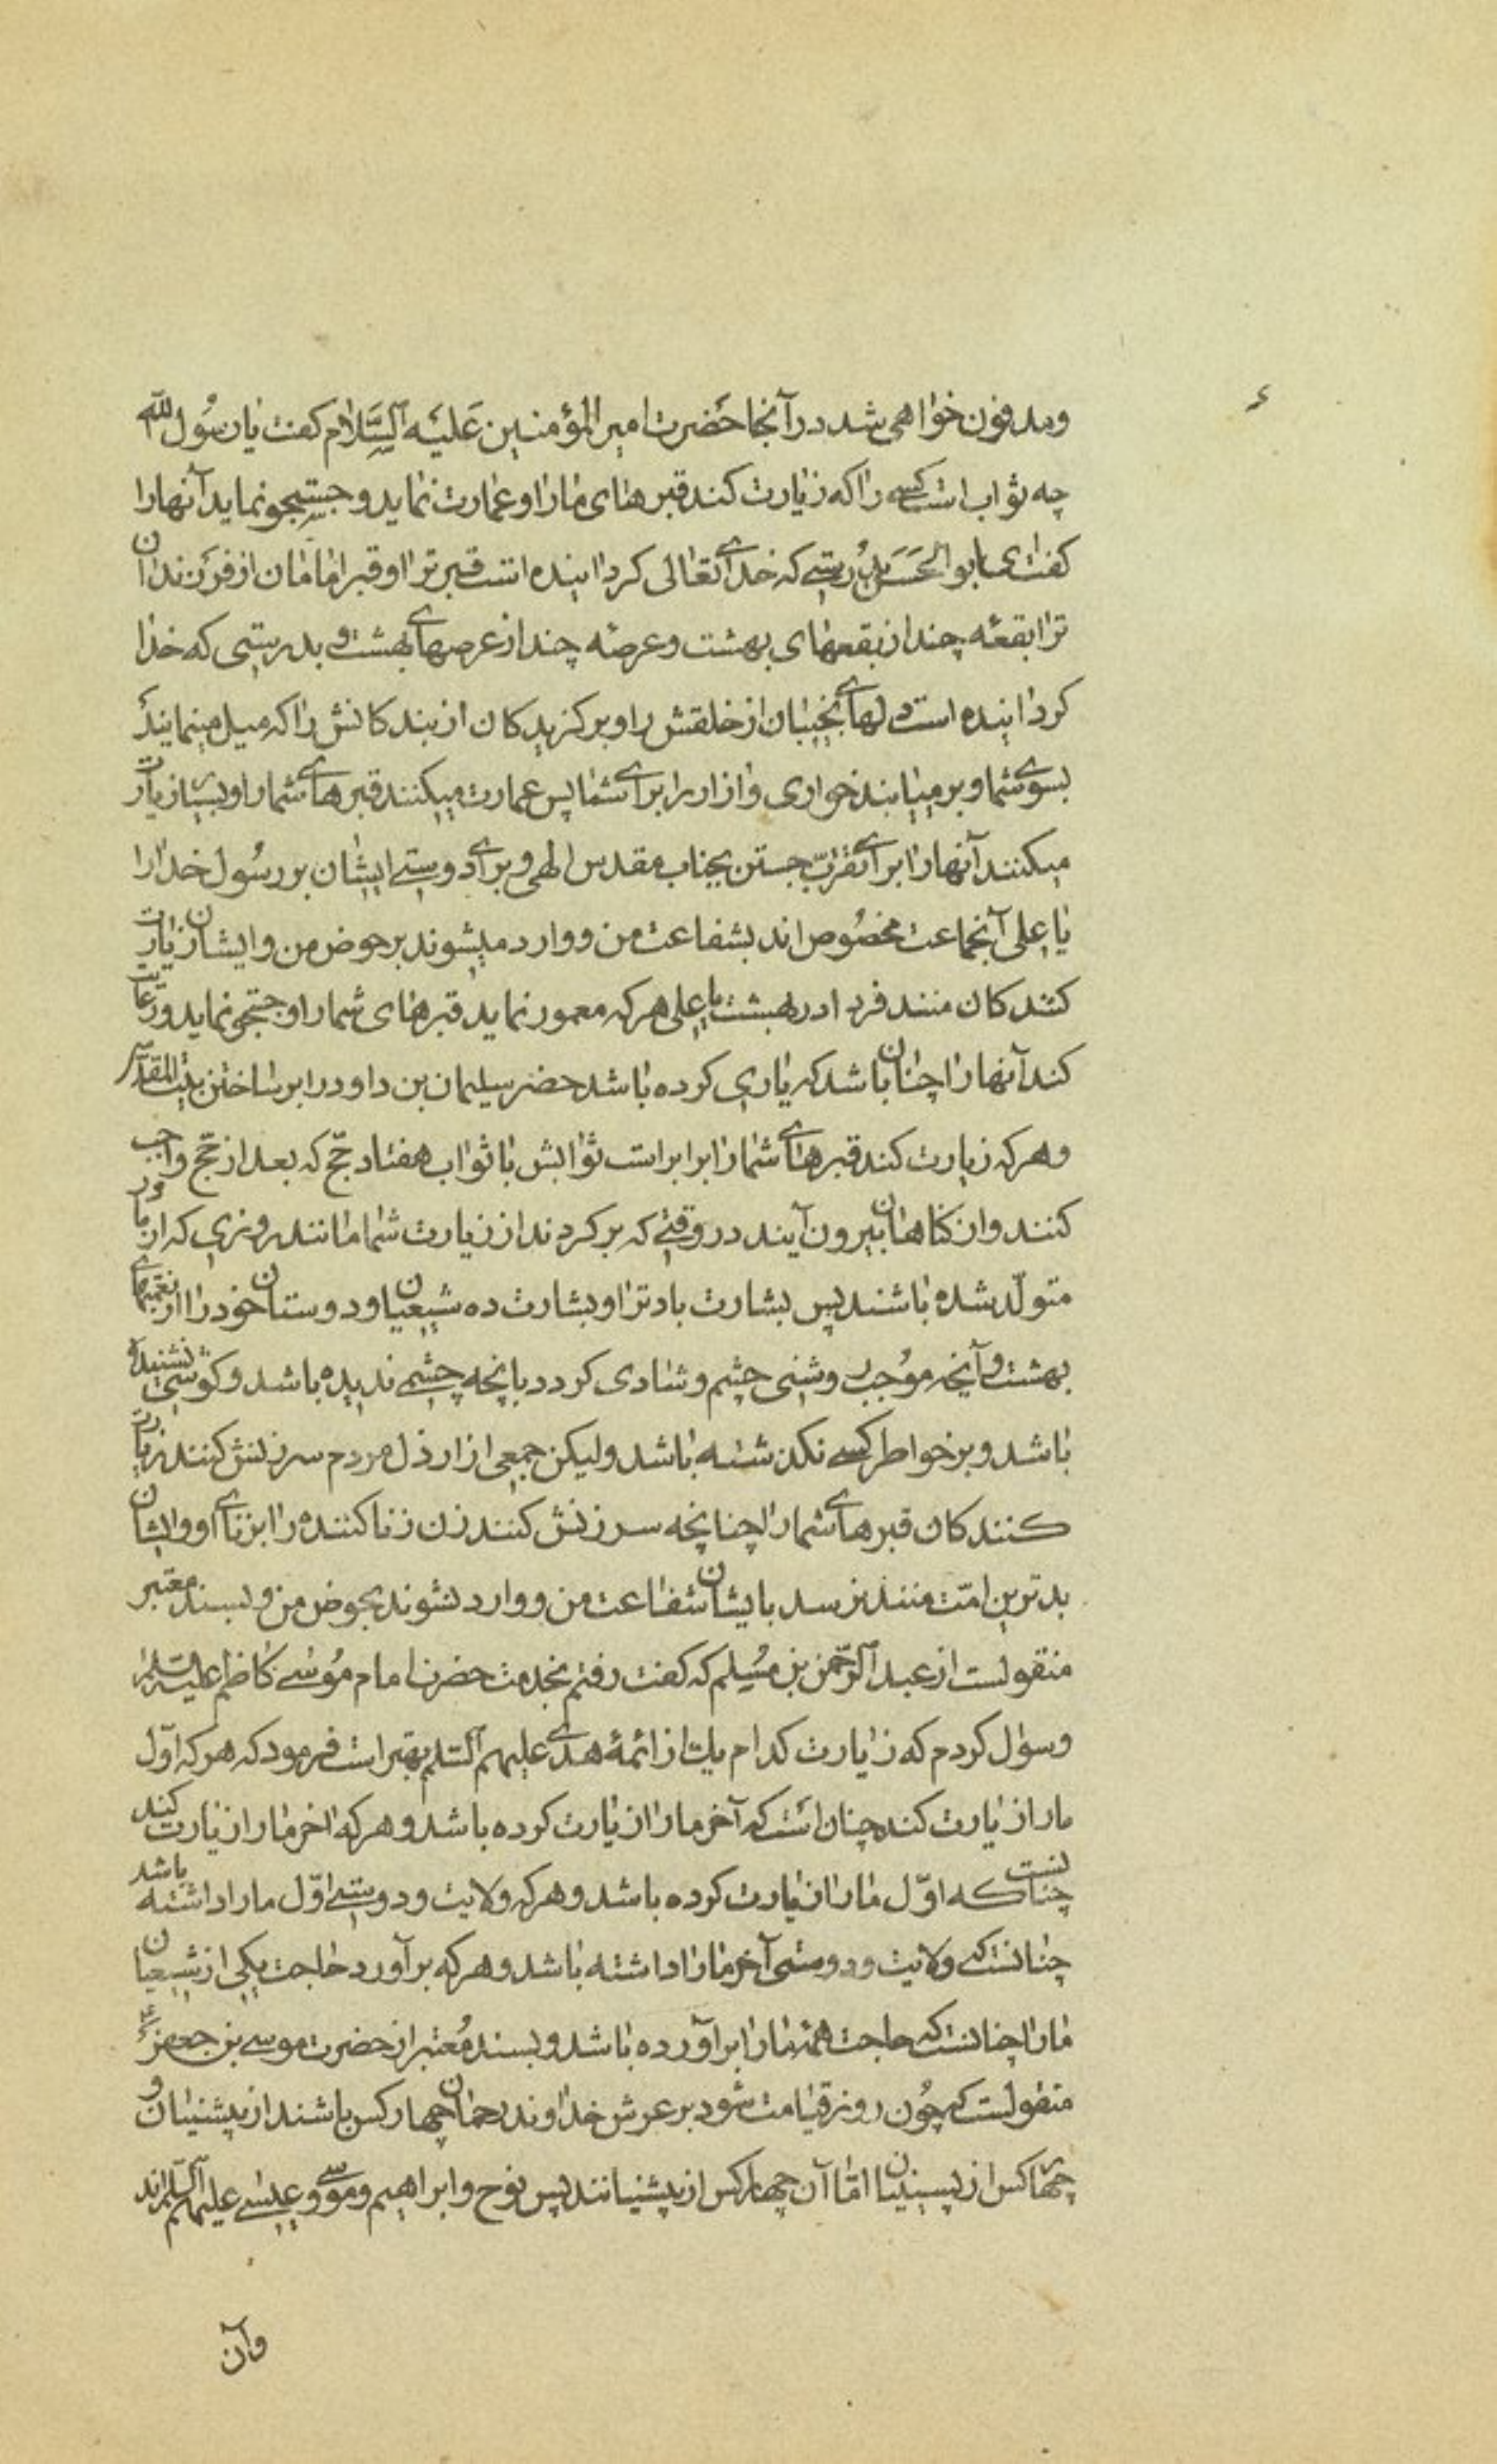 ع
ومدفون خواهی شد در آنجا حَضرت امیر المؤمنین عَلیَه اَلسَّلام کفت یا رسُول الله
چه ثواب است کسی را که زیارت کند قبرهای ما را و عمارت نماید و جستجو نماید آنها را
کفت ای ابو الحَسَن بدُرستی که خدای تعالی کردانیده است قبر ترا و قبر امامان از فرزندان
ترا بقعهٔ چند از بقعهای بهشت و عرصهٔ چند از عرصهای بهشت و بدرستی که خدا
کردانیده است دلهای نجیبان از خلقش را و برکزیدکان از بندکانش را که میل مینمایند
بسوی شما و برمیتابند خواری و ازار را برای شما پس عمارت میکنند قبرهای شما را و بسیار زیارت
میکنند آنها را برای تقرّب جستن بجناب مقدس الهی و برای دوستی ایشان بر رسُول خدا را
یا علی آنجماعت مخصُوص اند بشفاعت من و وارد میشوند بر حوض من و ایشان زیارت
کنندکان منند فردا در بهشت یا علی هر که معمور نماید قبرهای شما را و جستجو نماید و رعایت
کند آنها را چنان باشد که یاری کرده باشد حضرت سلیمان بن داود را بر ساختن بیت المقدّس
و هر که زیارت کند قبرهای شما را برابر است ثوابش با ثواب هفتاد حجّ که بعد از حجّ واجب
کنند و از کناهان بیرون آیند در وقتی که برکردند از زیارت شما مانند روزی که از مادر
متولّد شده باشند پس بشارت باد ترا و بشارت ده شیعیان و دوستان خود را از نعمتهای
بهشت و آنچه موُجب روشنی چشم و شادی کردد بآنچه چشمی ندیده باشد و کوشی نشنیده
باشد و بر خواطر کسی نکذشته باشد و لیکن جمعی از ارذل مردم سرزنش کنند زیارت
کنندکان قبرهای شما را چنانچه سرزنش کنند زن زنا کننده را بزنای او و ایشان
بدترین امّت منند نرسد بایشان شفاعت من و وارد نشوند بحوض من و بسند معتبر
منقولست از عبد الرّحمن بن مُسلم که کفت رفتم بخدمت حضرت امام مُوسی کاظم علیه السلام
و سؤال کردم که زیارت کدام یک از ائمهٔ هدی علیهم السلم بهتر است فرمود که هر که اوّل
ما را زیارت کند چنان است که آخر ما را زیارت کرده باشد و هر که اخر ما را زیارت کند
چنانست که اوّل ما را زیارت کرده باشد و هر که ولایت و دوستی اوّل ما را داشته باشد
چنانست که ولایت و دوستی آخر ما را داشته باشد و هر که برآورد حاجت یکی از شیعیان
ما را چنانست که حاجت همهٔ ما را برآورده باشد و بسند مُعتبر از حضرت موسی بن جعفر ع
منقولست که چُون روز قیامت شود بر عرش خداوند رحمان چهار کس باشند از پیشنیان و
چهار کس از پسینیان امّا آن چهار کس از پیشنیانند پس نوح و ابراهیم و موسی و عیسی علیهم السّلم اند
و آن